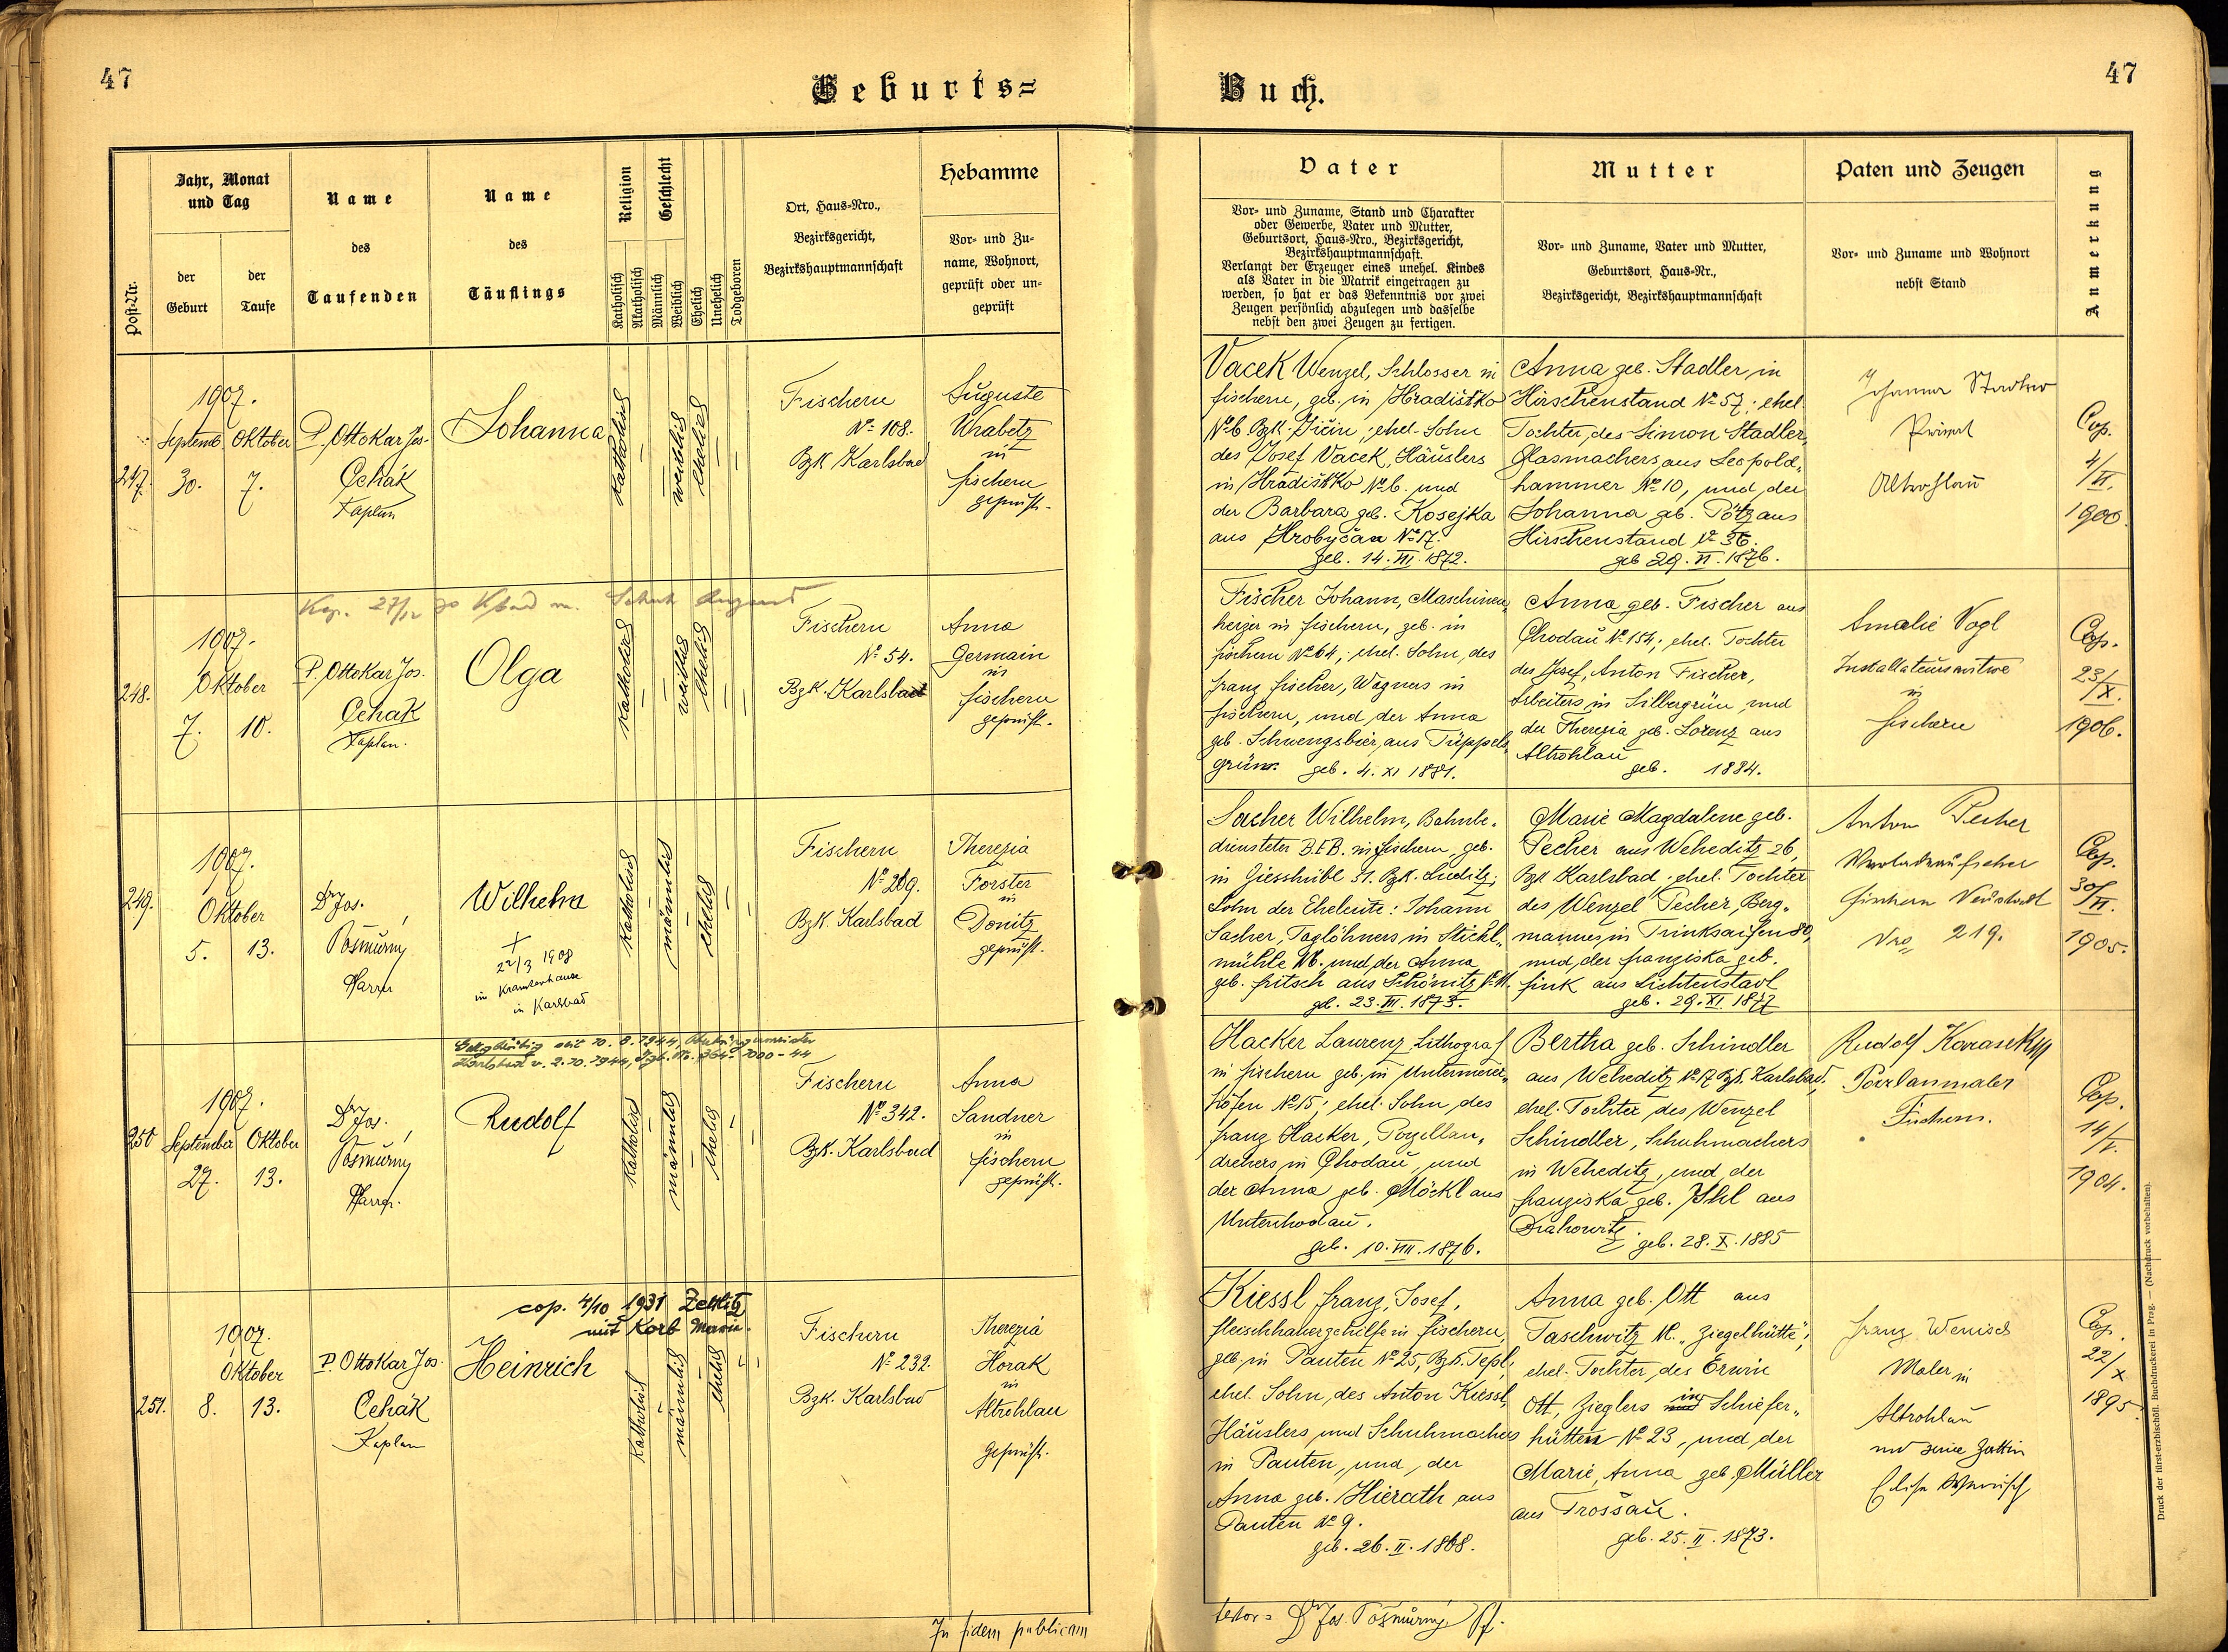 47
Geburts=
Buch.
47
Post-Nr.
Jahr, Monat
und Tag
der
Geburt
der
Taufe
Name
des
Taufenden
Name
des
Täuflings
Religion
Katholisch
Akatholisch
Geschlecht
Männlich
Weiblich
Ehelich
Unehelich
Todgeboren
Ort, Haus-Nro.,
Bezirksgericht,
Bezirkshauptmannschaft
Hebamme
Vor- und Zu-
name, Wohnort,
geprüft oder un-
geprüft
Vater
Vor- und Zuname, Stand und Charakter
oder Gewerbe, Vater und Mutter,
Geburtsort, Haus-Nro., Bezirksgericht,
Bezirkshauptmannschaft.
Verlangt der Erzeuger eines unehel. Kindes
als Vater in die Matrik eingetragen zu
werden, so hat er das Bekenntnis vor zwei
Zeugen persönlich abzulegen und dasselbe
nebst den zwei Zeugen zu fertigen.
Mutter
Vor- und Zuname, Vater und Mutter,
Geburtsort, Haus-Nr.,
Bezirksgericht, Bezirkshauptmannschaft
Paten und Zeugen
Vor- und Zuname und Wohnort
nebst Stand
Anmerkung
247.
1907.
Septemb. Oktober
30. 7.
P. Ottokar Jos.
Čehák
Kaplan
Johanna
katholisch
weiblich
ehelich
Fischern
No 108.
Bzk Karlsbad
Auguste
Wrabetz
in
Fischern
geprüft.
Vacek Wenzel, Schlosser in
Fischern, geb. in Hradištko
No 6 Bzk. Jičin, ehel. Sohn
des Josef Vacek, Häuslers
in Hradištko No 6. und
der Barbara geb. Kosejka
aus Hrobyčan No 17.
geb. 14. III. 1872.
Anna geb. Stadler, in
Hirschenstand No 57; ehel.
Tochter, des Simon Stadler,
Glasmachers, aus Leopold-
hammer No 10, und der
Johanna geb. Pötz aus
Hirschenstand No 36.
geb 29. VI. 1876.
Johanna Stadler
Privat
Altrohlau
Cop.
4/VI.
1900.
Kop. 27/12
248.
1907.
Oktober
7. 10.
P. Ottokar Jos.
Čehák
Kaplan.
Olga
katholisch
weiblich
ehelich
Fischern
No 54.
Bzk. Karlsbad
Anna
Germain
in
Fischern
geprüft.
Fischer Johann, Maschinen-
heizer in Fischern, geb. in
Fischern No 64; ehel. Sohn, des
Franz Fischer, Wagners in
Fischern, und der Anna
geb. Schwengsbier, aus Tüppels-
grün. geb. 4. XI 1881.
Anna geb. Fischer aus
Chodau No 154; ehel. Tochter
des Josef, Anton Fischer,
Arbeiters, in Silbergrün, und
der Theresia geb. Lorenz aus
Altrohlau
geb. 1884.
Amalie Vogl
Installateurswitwe
in
Fischern
Cop.
23/X.
1906.
249.
1907.
Oktober
5. 13.
Dr Jos.
Pošmůrny
Pfarrer
Wilhelm
+
22/3 1908
im Krankenhause
in Karlsbad
katholisch
männlich
ehelich
Fischern
No 209.
Bzk. Karlsbad
Therezia
Forster
in
Donitz
geprüft.
Sacher Wilhelm, Bahnbe-
diensteter B.E.B. in Fischern, geb.
in Giesshübl 31. Bzk. Luditz;
Sohn der Eheleute: Johann
Sacher, Taglöhners, in Stichl-
mühle und der Anna
geb. Fritsch aus Schönitz
geb. 23. III. 1873.
Marie Magdalene geb.
Pecher aus Weheditz 26,
Bzk Karlsbad, ehel. Tochter
des Wenzel Pecher, Berg-
mannes, in Trinksaifen 80,
und der Franziska geb.
Fink aus Lichtenstadt
geb. 29. XI. 1877
Anton Pecher
Verladeaufseher
Fischern Neustadt
Nro 219.
Cop.
30/VI.
1905.
v. 2.10.1944
250
1907.
September Oktober
27. 13.
Dr Jos.
Pošmůrny
Pfarrer.
Rudolf
katholisch
männlich
ehelich
Fischern
No 342.
Bzk. Karlsbad
Anna
Sandner
in
Fischern
geprüft.
Hacker Laurenz, Lithograf
in Fischern geb. in Untermeier-
höfen No 15; ehel. Sohn, des
Franz Hacker, Porzellan-
drehers, in Chodau, und
der Anna geb. Möckl aus
Unterchodau.
geb. 10. VIII. 1876.
Bertha geb. Schindler
aus Weheditz No 17 Bzk. Karlsbad.
ehel. Tochter des Wenzel
Schindler, Schuhmachers
in Weheditz, und der
Franziska geb. Ihl aus
Drahowitz
geb. 28. X. 1885
Rudolf Karasek
Porzlanmaler
Fischern.
Cop.
14/V.
1904.
cop. 4/10 1931 Zettlitz
mit Korb Marie.
251.
1907.
Oktober
8. 13.
P. Ottokar Jos.
Čehák
Kaplan
Heinrich
katholisch
männlich
ehelich
Fischern
No 232.
Bzk. Karlsbad
Therezia
Horak
in
Altrohlau
geprüft.
Kiessl Franz, Josef,
Fleischhauergehilfe in Fischern,
geb. in Pauten No 25, Bzk. Tepl;
ehel. Sohn, des Anton Kiessl,
Häuslers und Schuhmachers
in Pauten, und der
Anna geb. Hierath aus
Pauten No 9.
geb. 26. II. 1868.
Anna geb. Ott aus
Taschwitz „Ziegelhütte";
ehel. Tochter, des Erwin
Ott, Zieglers in Schiefer-
hütten No 23, und der
Marie, Anna geb. Müller
aus Trossau.
geb. 25. II. 1873.
Franz Wenisch
Maler in
Altrohlau
und seine Gattin
Elise Wenisch
Cop.
22/X
1895.
In fidem publicam
testor: Dr Jos. Pošmůrný, Pf.
Druck der fürst-erzbischöfl. Buchdruckerei in Prag. — (Nachdruck vorbehalten).